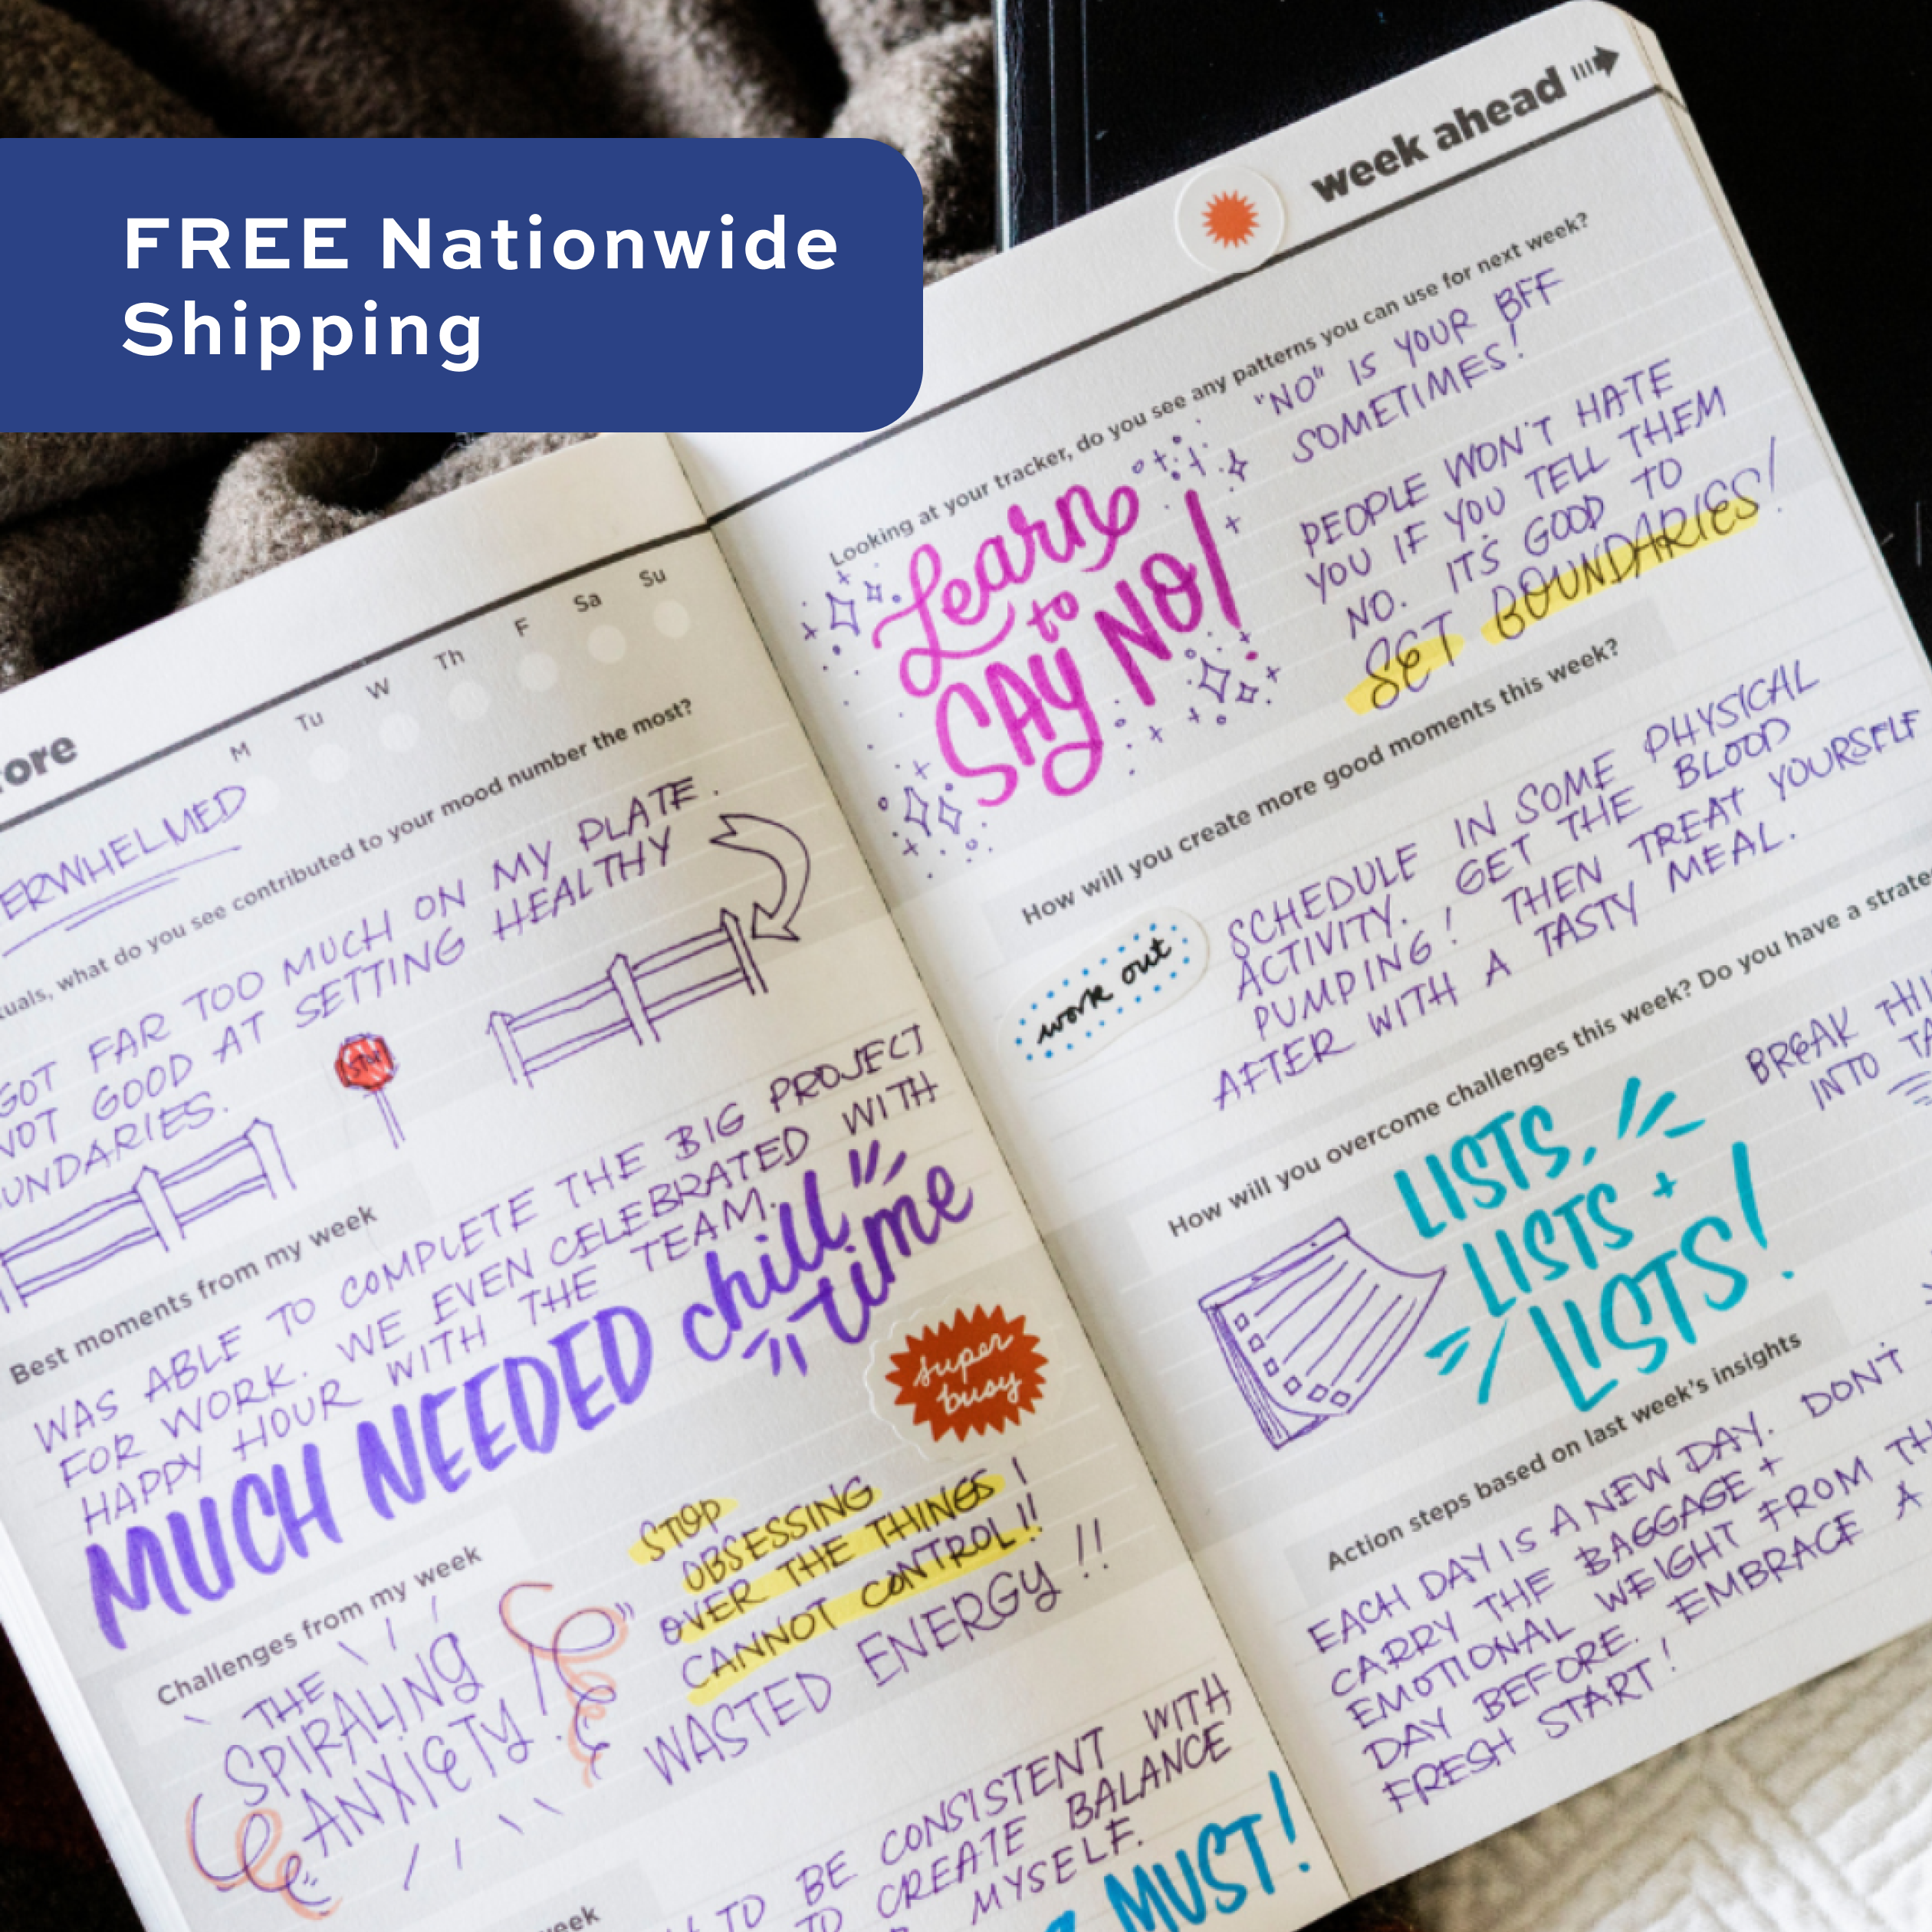 FREE Nationwide
Shipping
M Tu W Th F Sa Su
what do you see contributed to your mood number the most?
GOT FAR TOO MUCH ON MY PLATE.
NOT GOOD AT SETTING HEALTHY
STOP
Best moments from my week
WAS ABLE TO COMPLETE THE BIG PROJECT
FOR WORK. WE EVEN CELEBRATED WITH
HAPPY HOUR WITH THE TEAM.
MUCH NEEDED chill
time
super
busy
Challenges from my week
THE
SPIRALING
ANXIETY
STOP
OBSESSING
OVER THE THINGS I
CANNOT CONTROL!!
WASTED ENERGY!!
TO BE CONSISTENT WITH
TO CREATE BALANCE
MYSELF.
MUST!
week
week ahead
Looking at your tracker, do you see any patterns you can use for next week?
Learn
to
SAY NO!
"NO" IS YOUR BFF
SOMETIMES!
PEOPLE WON'T HATE
YOU IF YOU TELL THEM
NO. IT'S GOOD TO
SET BOUNDARIES!
How will you create more good moments this week?
work out
SCHEDULE IN SOME PHYSICAL
ACTIVITY. GET THE BLOOD
PUMPING! THEN TREAT YOURSELF
AFTER WITH A TASTY MEAL.
How will you overcome challenges this week? Do you have a
LISTS,
LISTS +
LISTS!
BREAK
INTO
Action steps based on last week's insights
EACH DAY IS A NEW DAY. DON'T
CARRY THE BAGGAGE +
EMOTIONAL WEIGHT FROM
DAY BEFORE. EMBRACE A
FRESH START!